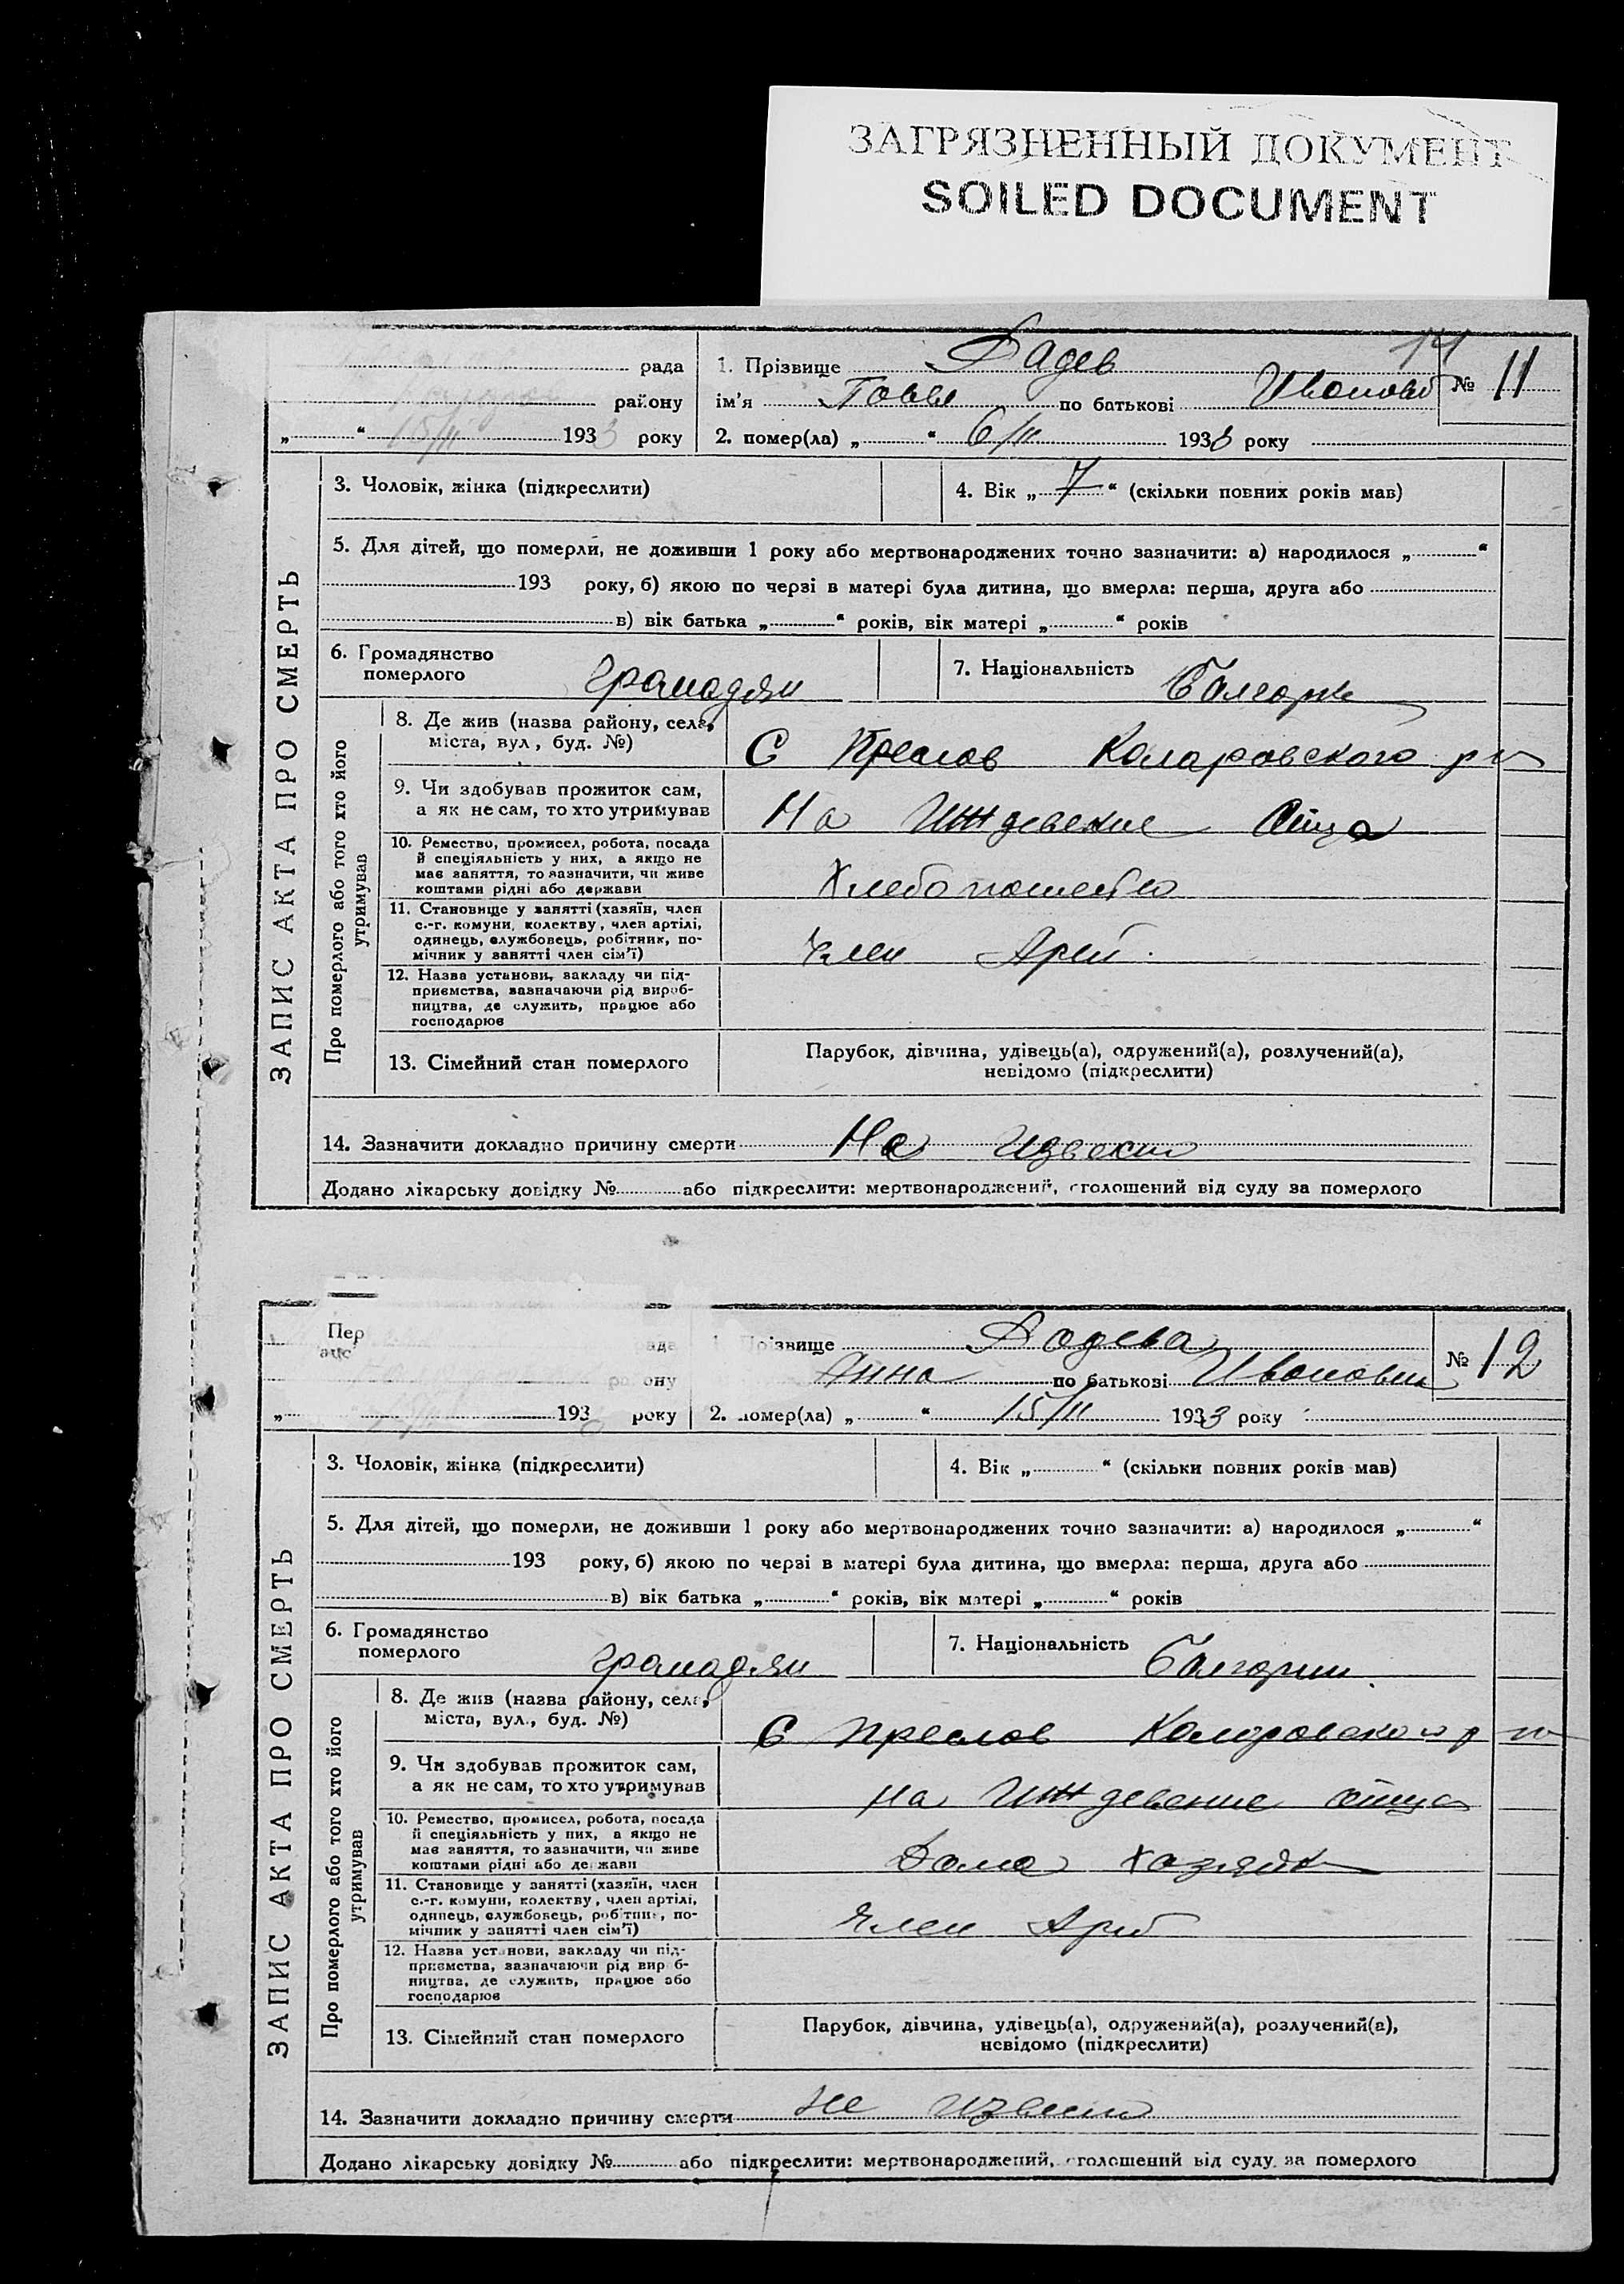 ЗАГРЯЗНЕННЫЙ ДОКУМЕНТ
SOILED DOCUMENT
рада
району
„ “ 15/II 1933 року
1. Прізвище Дадев
14
ім’я по батькові
№ 11
2. помер(ла) „ “ 6/II 1933 року
ЗАПИС АКТА ПРО СМЕРТЬ
3. Чоловік, жінка (підкреслити)
4. Вік „ 7 “ (скільки повних років мав)
5. Для дітей, що померли, не доживши 1 року або мертвонароджених точно зазначити: а) народилося „ “
193 року, б) якою по черзі в матері була дитина, що вмерла: перша, друга або
в) вік батька „ “ років, вік матері „ “ років
6. Громадянство
померлого громадян
7. Національність
Про померлого або того хто його
утримував
8. Де жив (назва району, села,
міста, вул, буд. №)
С Преслав Коларовского р н
9. Чи здобував прожиток сам,
а як не сам, то хто утримував
На Иждевение Отца
10. Ремество, промисел, робота, посада
й спеціяльність у них, а якщо не
має заняття, то зазначити, чи живе
коштами рідні або держави
11. Становище у занятті (хазяїн, член
с.-г. комуни, колектву, член артілі,
одинець, службовець, робітник, по-
мічник у занятті член сім’ї)
Член
12. Назва установи, закладу чи під-
приємства, зазначаючи рід вироб-
ництва, де служить, працює або
господарює
13. Сімейний стан померлого
Парубок, дівчина, удівець(а), одружений(а), розлучений(а),
невідомо (підкреслити)
14. Зазначити докладно причину смерти Не
Додано лікарську довідку № або підкреслити: мертвонароджений, оголошений від суду за померлого
Пер
рада
району
„ 193 року
1. Прізвище Дадева
Анна по батькові
№ 12
2. помер(ла) „ “ 15/II 1933 року
ЗАПИС АКТА ПРО СМЕРТЬ
3. Чоловік, жінка (підкреслити)
4. Вік „ “ (скільки повних років мав)
5. Для дітей, що померли, не доживши 1 року або мертвонароджених точно зазначити: а) народилося „ “
193 року, б) якою по черзі в матері була дитина, що вмерла: перша, друга або
в) вік батька „ “ років, вік матері „ “ років
6. Громадянство
померлого громадян
7. Національність
Про померлого або того хто його
утримував
8. Де жив (назва району, села,
міста, вул., буд. №)
С Преслав р н
9. Чи здобував прожиток сам,
а як не сам, то хто утримував
На Иждевение отца
10. Ремество, промисел, робота, посада
й спеціяльність у них, а якщо не
має заняття, то зазначити, чи живе
коштами рідні або держави
Дома
11. Становище у занятті (хазяїн, член
с.-г. комуни, колектву, член артілі,
одинець, службовець, робітник, по-
мічник у занятті член сім’ї)
Член
12. Назва установи, закладу чи під-
приємства, зазначаючи рід вироб-
ництва, де служить, працює або
господарює
13. Сімейний стан померлого
Парубок, дівчина, удівець(а), одружений(а), розлучений(а),
невідомо (підкреслити)
14. Зазначити докладно причину смерти Не
Додано лікарську довідку № або підкреслити: мертвонароджений, оголошений від суду за померлого